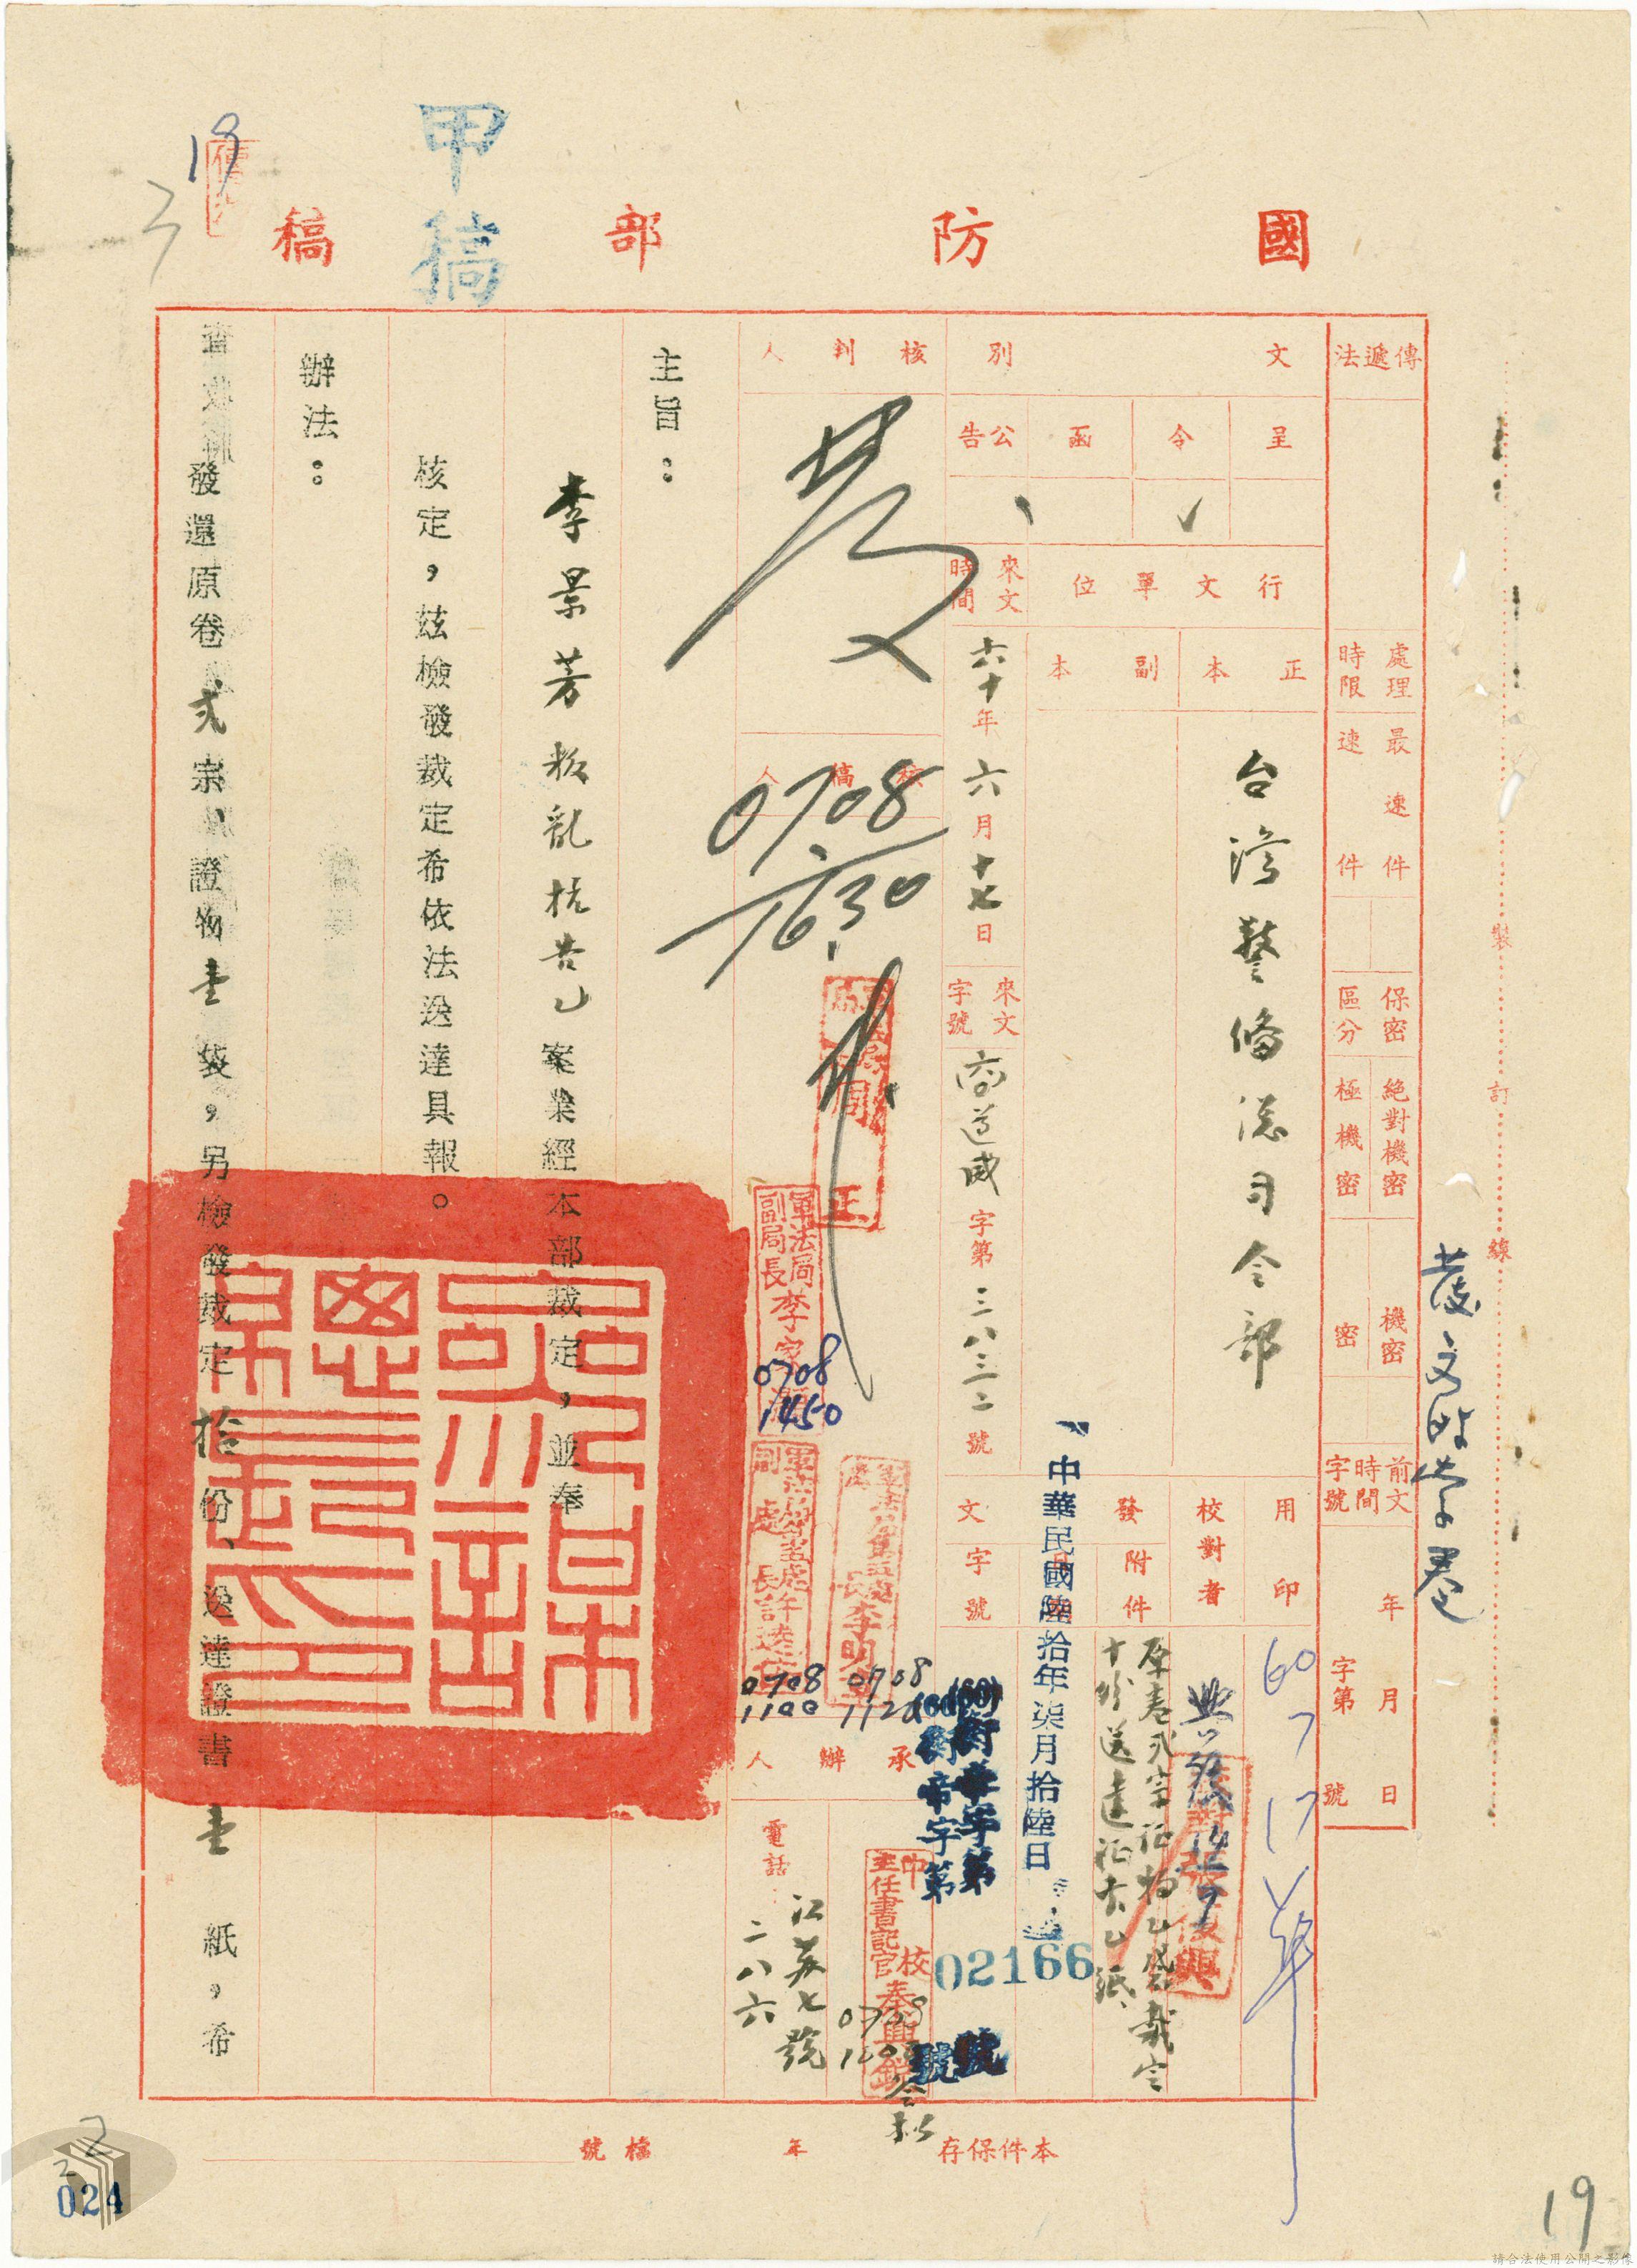 國防部稿
甲稿
19
傳遞法
處理時限
最速件
速件
保密區分
絕對機密
極機密
機密
密
前文時間字號
年月日
字第號
文別
呈
令
函
公告
行文單位
正本
副本
台灣警備總司令部
來文時間
六十年六月十七日
來文字號
字第三八三二號
用印
60 7 17
校對者
發文
附件
原卷弍宗证物乙袋裁定
十份送達证书乙紙
中華民國陸拾年柒月拾陸日
字號
(60)
字第
02166
號
核判人
核稿人
0708
1630
軍法局副局長李
0708
1450
0708
1120
0708
1100
承辦人
主任書記官秦
電話：
江蘇七號
二八六
主旨：
李景芳叛亂抗告乙案業經本部裁定，並奉
核定，茲檢發裁定希依法送達具報。
辦法：
發還原卷弍宗，證物壹袋，另檢發裁定拾份、送達證書壹紙，希
裝訂線
本件保存年
檔號
024
19
請合法使用公開之影像